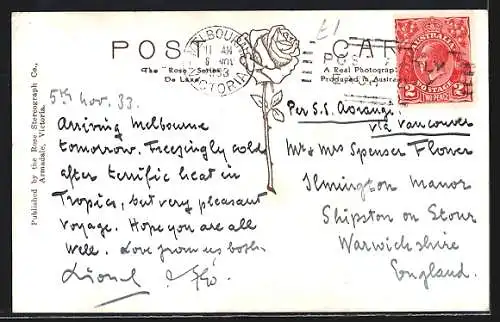 £1
POST CARD
The "Rose" Series
De Luxe
A Real Photograph
Produced in Australia
Published by the Rose Stereograph Co.,
Armadale, Victoria.
MELBOURNE
11 AM
VICTORIA
AUSTRALIA
POSTAGE
TWO PENCE
5th Nov. 33.
Arriving Melbourne
tomorrow. Freezingly cold
after terrific heat in
Tropics, but very pleasant
voyage. Hope you are all
well. Love from us both
Lionel & Flo.
Per S.S. Aorangi
via Vancouver
Mr & Mrs Spenser Flower
Ilmington Manor
Shipston on Stour
Warwickshire
England.